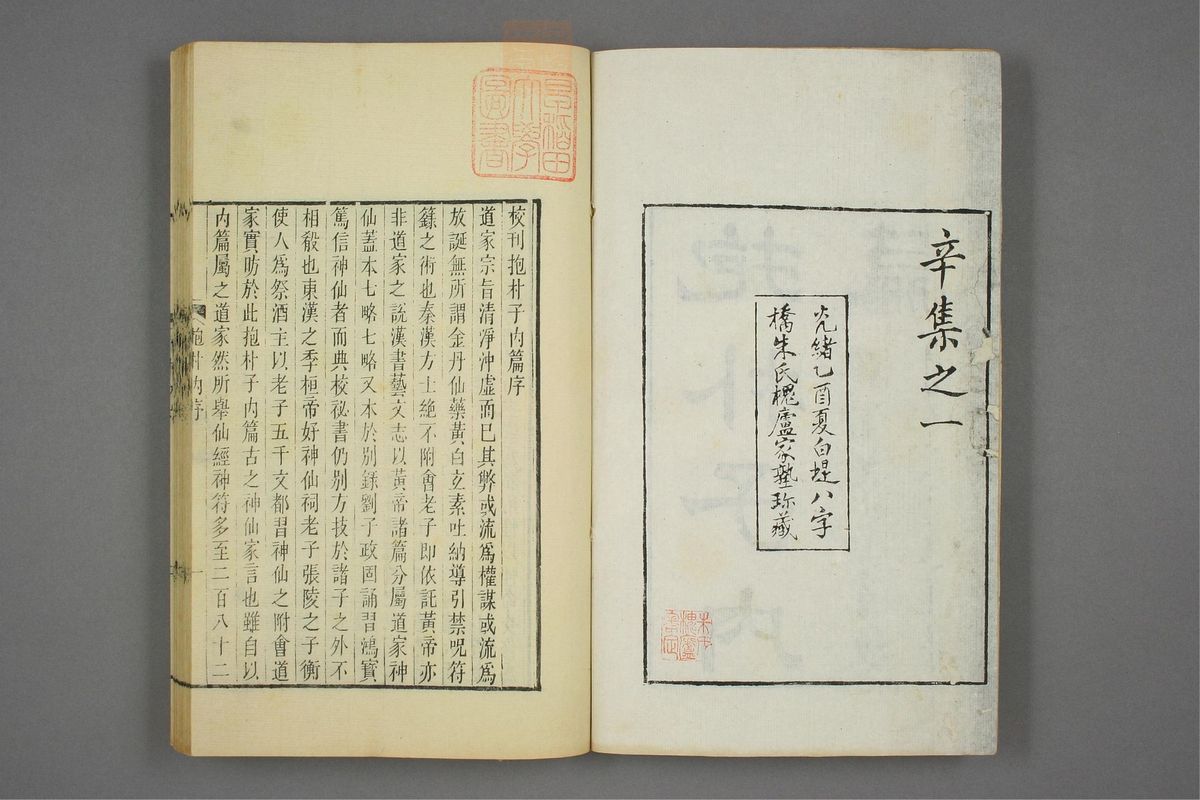 辛集之一
光緒乙酉夏白堤八字
橋朱氏槐廬家塾珍藏
早稻田
大學
圖書
校刊抱朴子內篇序
道家宗旨清淨沖虛而已其弊或流爲權謀或流爲
放誕無所謂金丹仙藥黃白玄素吐納導引禁呪符
籙之術也秦漢方士絶不附會老子即依託黃帝亦
非道家之說漢書藝文志以黃帝諸篇分屬道家神
仙蓋本七略七略又本於別錄劉子政固誦習鴻寶
篤信神仙者而典校祕書仍別方技於諸子之外不
相殽也東漢之季桓帝好神仙祠老子張陵之子衡
使人爲祭酒主以老子五千文都習神仙之附會道
家實昉於此抱朴子內篇古之神仙家言也雖自以
內篇屬之道家然所舉仙經神符多至二百八十二
抱朴內序
一